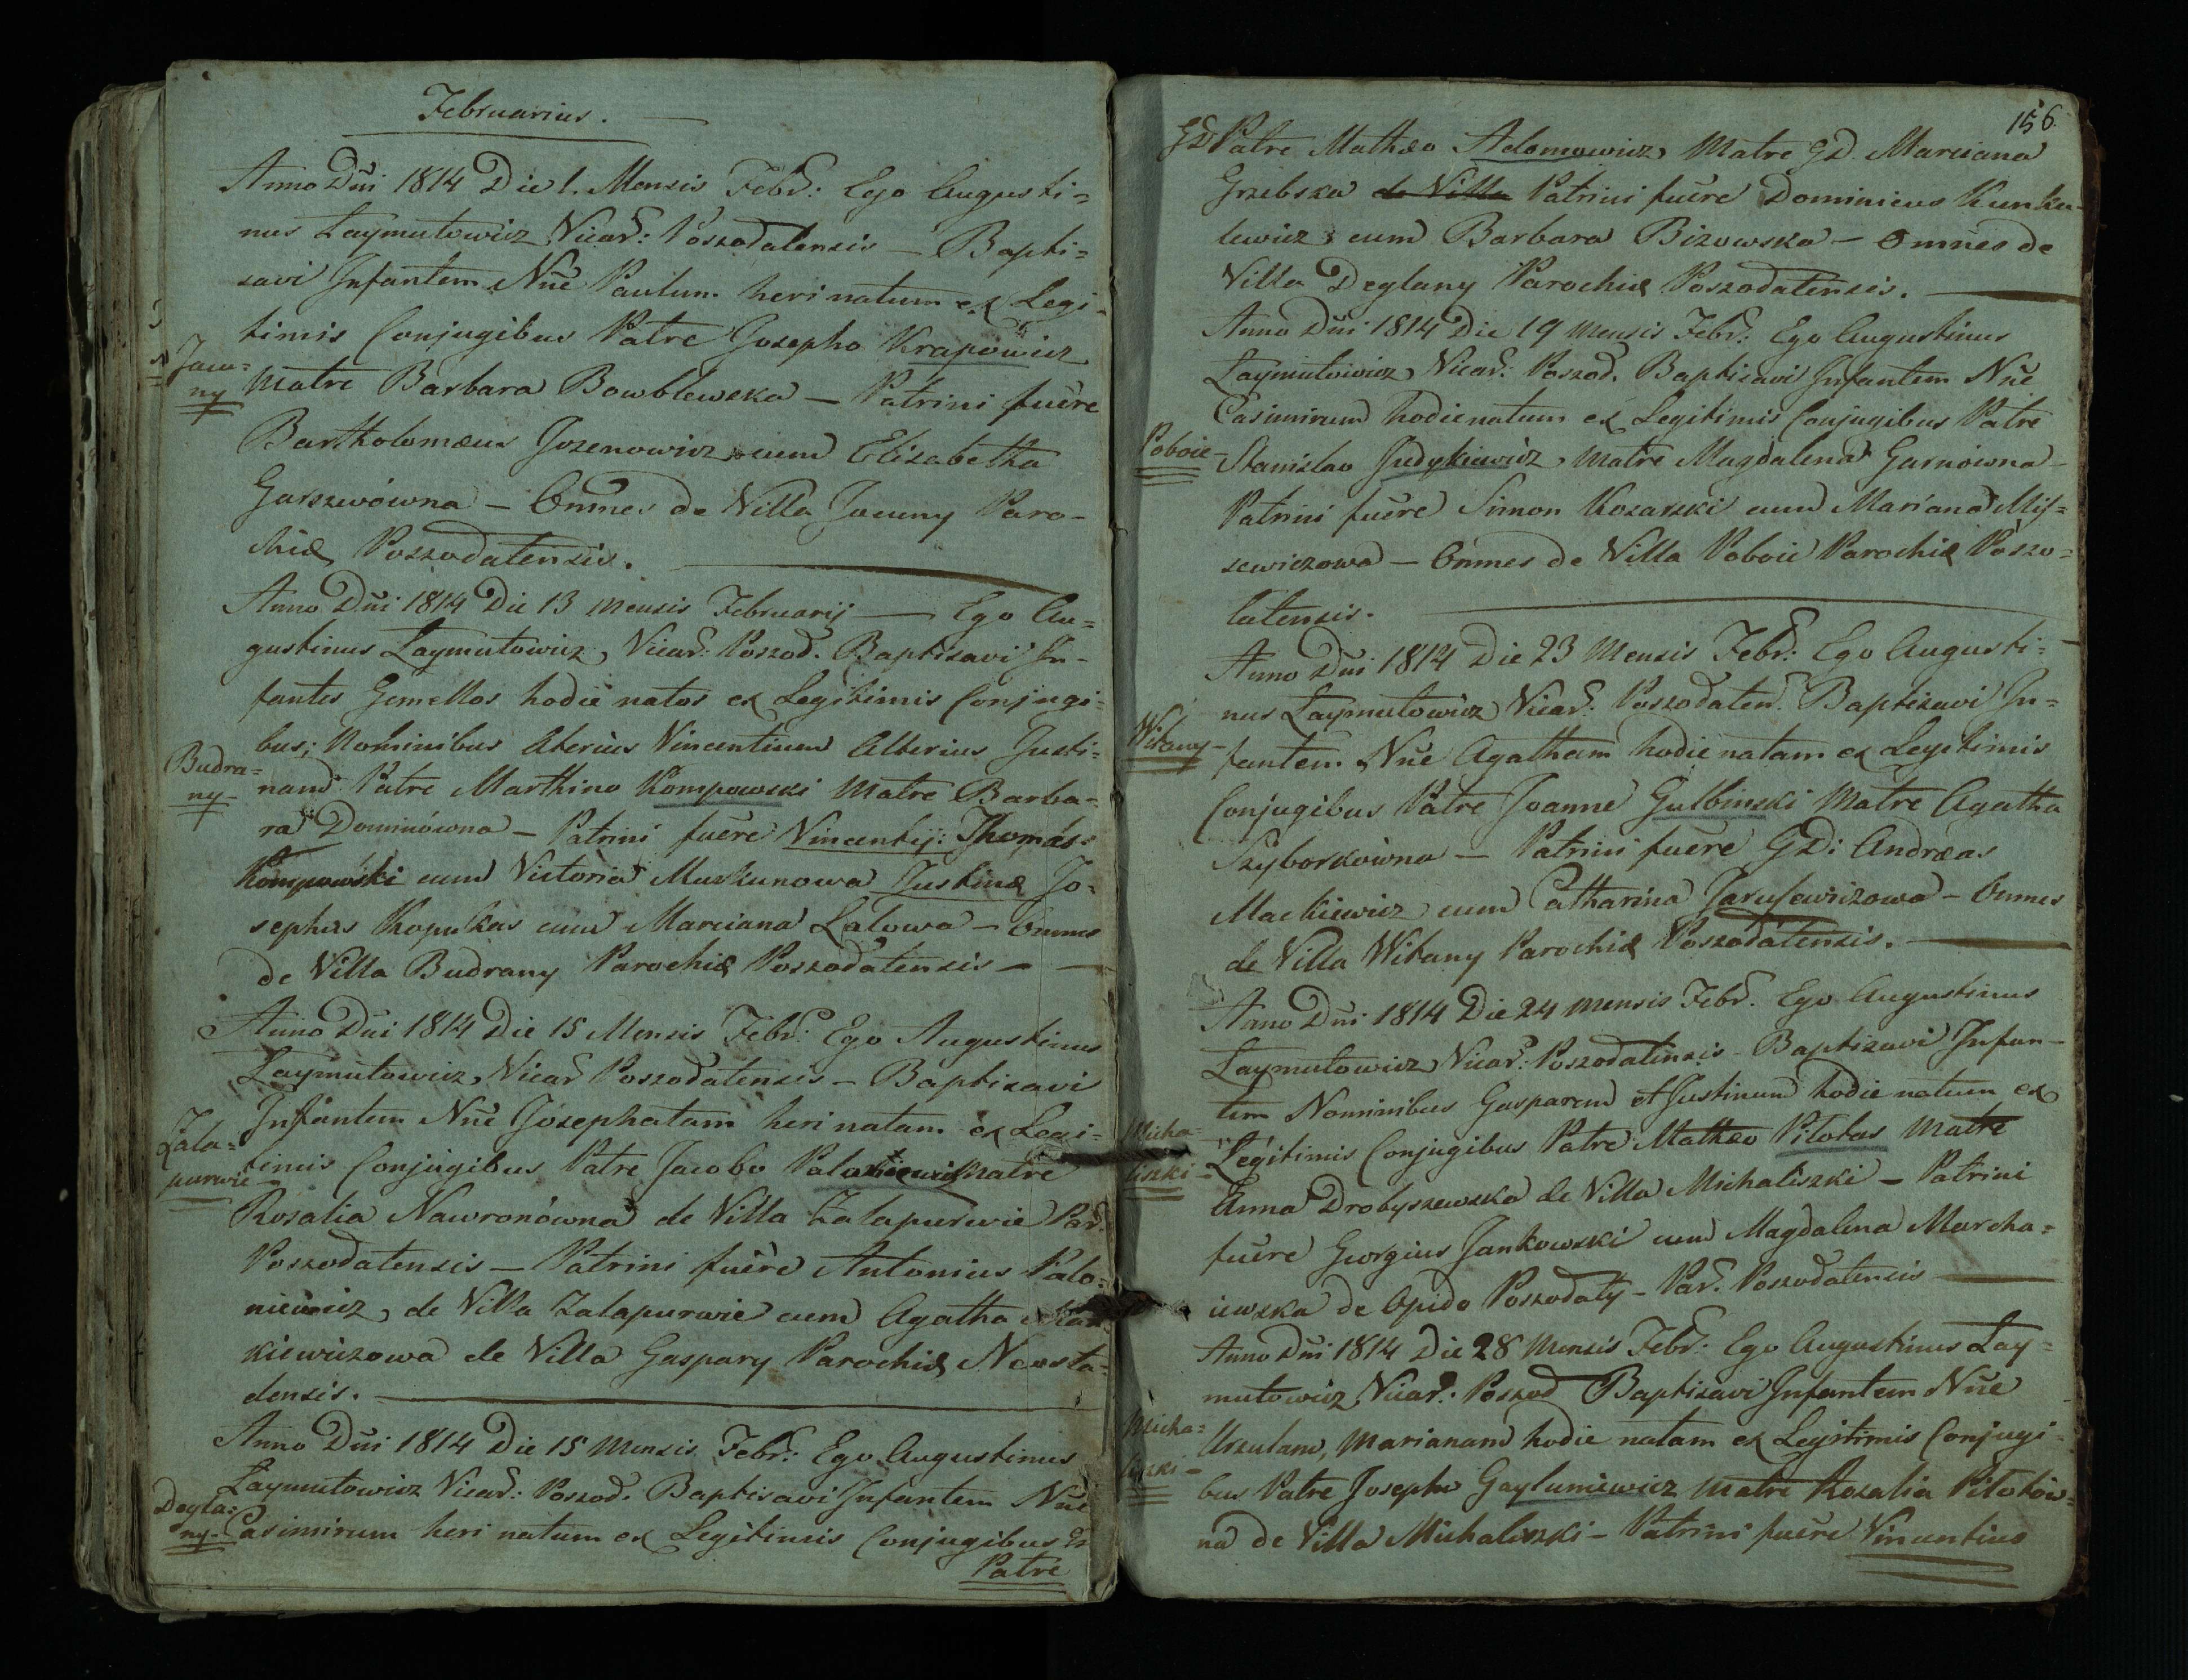 Februarius.
Anno Dñi 1814 Die 1. Mensis Febr: Ego Augusti=
nus Laymutowicz Vicar: Poszodatensis — Bapti=
savi Infantem Nñe Paulum heri natum ex Legi-
timis Conjugibus Patre Josepho Krapowicz
Jacu=
ny
Matre Barbara Bowblewska — Patrini fuêre
Bartholomæus Jozenowicz cum Elisabetha
Garszwówna — Omnes de Villa Jacuny Paro-
chiæ Poszodatensis.
Anno Dñi 1814 Die 13 Mensis Februarij — Ego Au=
gustinus Laymutowicz, Vicar: Poszod. Baptisavi In-
fantes Gemellos hodie natos ex Legitimis Conjugi=
bus; Nominibus Aterius Vincentium Alterius Justi=
Budra=
ny-
nam Patre Marthino Kompowski Matre Barba=
ra Dominówna — Patrini fuêre Vincentij: Thomas:
Kompowski cum Victoria Muskunowa Justinæ Jo=
sephus Kopukas cum Marciana Lalowa — Omnes
de Villa Budrany Parochiæ Poszodatensis —
Anno Dñi 1814 Die 15 Mensis Febr: Ego Augustinus
Laymutowicz, Vicar Poszodatensis — Baptisavi
Infantem Nñe Josephatam heri natam ex Legi=
Zala=
purwie-
timis Conjugibus Patre Jacobo Paloniewicz Matre
Rosalia Nawronówna de Villa Zalapurwie Par.
Poszodatensis — Patrini fuêre Antonius Palo=
niewicz, de Villa Zalapurwie cum Agatha
kiewiczowa de Villa Gaspary Parochiæ Neosta=
densis.
Anno Dñi 1814 Die 15 Mensis Febr: Ego Augustinus
Laymutowicz Vicar: Poszod. Baptisavi Infantem Nñe
Degla=
ny-
Casimirum heri natum ex Legitimis Conjugibus
Patre
156.
GD Patre Mathæo Adomowicz, Matre GD. Marciana
Grzebska de Villa Patrini fuêre Dominicus Kunku-
lewicz cum Barbara Bizowska — Omnes de
Villa Deglany Parochiæ Poszodatensis.
Anno Dñi 1814 Die 19 Mensis Febr: Ego Augustinus
Laymutowicz, Vicar: Poszod. Baptisavi Infantem Nñe
Casimirum hodie natum ex Legitimis Conjugibus Patre
Poboie-
Stanislao Judykiewicz, Matre Magdalena Garnowna-
Patrini fuêre Simon Kozarski cum Mariana Mis=
sewiczowa — Omnes de Villa Poboie Parochiæ Poszo=
latensis.
Anno Dñi 1814 Die 23 Mensis Febr: Ego Augusti=
nus Laymutowicz Vicar. Poszodaten. Baptisavi In=
Witany-
fantem Nñe Agatham hodie natam ex Legitimis
Conjugibus Patre Joanne Gulbinski Matre Agatha
Szyborkówna — Patrini fuêre GD: Andræas
Mackiewicz cum Catharina Jarusewiczowa — Omnes
de Villa Witany Parochiæ Poszodatensis.
Anno Dñi 1814 Die 24 Mensis Febr. Ego Augustinus
Laymutowicz, Vicar: Poszodatensis - Baptizavi Infan-
tem Nominibus Gasparem et Justinum hodie natum ex
Micha=
liszki-
Legitimis Conjugibus Patre Mathæo Pitotas Matre
Anna Drobyszewska de Villa Michaliszki — Patrini
fuêre Georgius Jankowski cum Magdalena Marcha=
iewska de Opido Poszodaty - Par. Poszodatensis
Anno Dñi 1814 Die 28 Mensis Febr: Ego Augustinus Lay=
mutowicz, Vicar: Poszod Baptisavi Infantem Nñe
Micha=
liszki-
Urszulam, Marianam hodie natam ex Legitimis Conjugi-
bus Patre Josepho Gayluniewicz Matre Rozalia Pitotów=
na de Villa Michaliszki — Patrini fuêre Vincentius